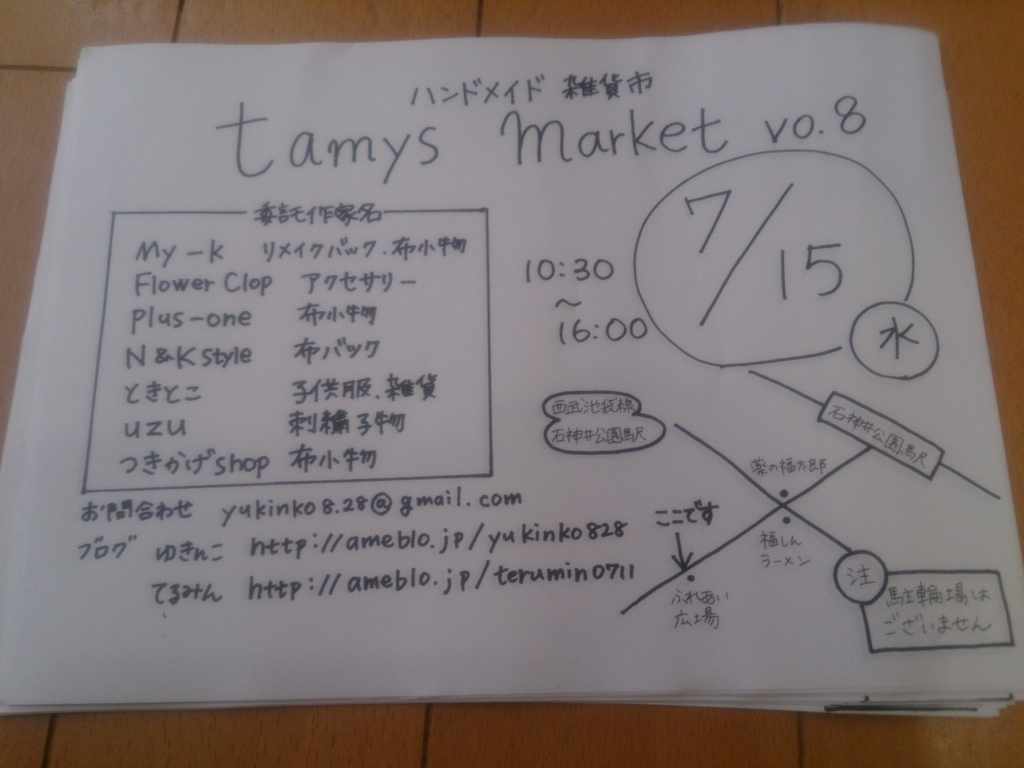 ハンドメイド 雑貨市
tamys market vo.8
7/15
水
10:30
～
16:00
委託作家名
My-k リメイクバック.布小物
Flower Clop アクセサリー
plus-one 布小物
N&Kstyle 布バック
ときとこ 子供服.雑貨
uzu 刺繍子物
つきかげshop 布小物
お問合わせ yukinko8.28@gmail.com
ブログ ゆきんこ http://ameblo.jp/yukinko828
てるみん http://ameblo.jp/terumin0711
西武池袋線
石神井公園駅
石神井公園駅
薬の福太郎
福しん
ラーメン
ここです
ふれあい
広場
注
駐輪場は
ございません